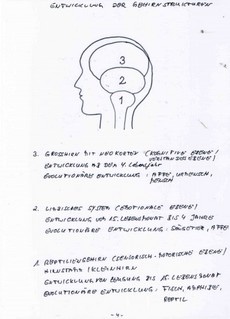 ENTWICKLUNG DER GEHIRNSTRUKTUREN
3
2
1
3. GROSSHIRN MIT NEOKORTEX (KOGNITIVE EBENE /
VERSTANDESEBENE)
ENTWICKLUNG AB DEM 4. Lebensjahr
EVOLUTIONÄRE ENTWICKLUNG: AFFE, URMENSCH,
MENSCH
2. LIMBISCHES SYSTEM (EMOTIONALE EBENE)
ENTWICKLUNG VOM 15. LEBENSMONAT BIS 4 JAHRE
EVOLUTIONÄRE ENTWICKLUNG: SÄUGETIER, AFFE
1. REPTILIENGEHIRN (SENSORISCH-MOTORISCHE EBENE)
HIRNSTAMM / KLEINHIRN
ENTWICKLUNG VON ZEUGUNG BIS 15. LEBENSMONAT
EVOLUTIONÄRE ENTWICKLUNG: FISCH, AMPHIBIE,
REPTIL
- 4 -